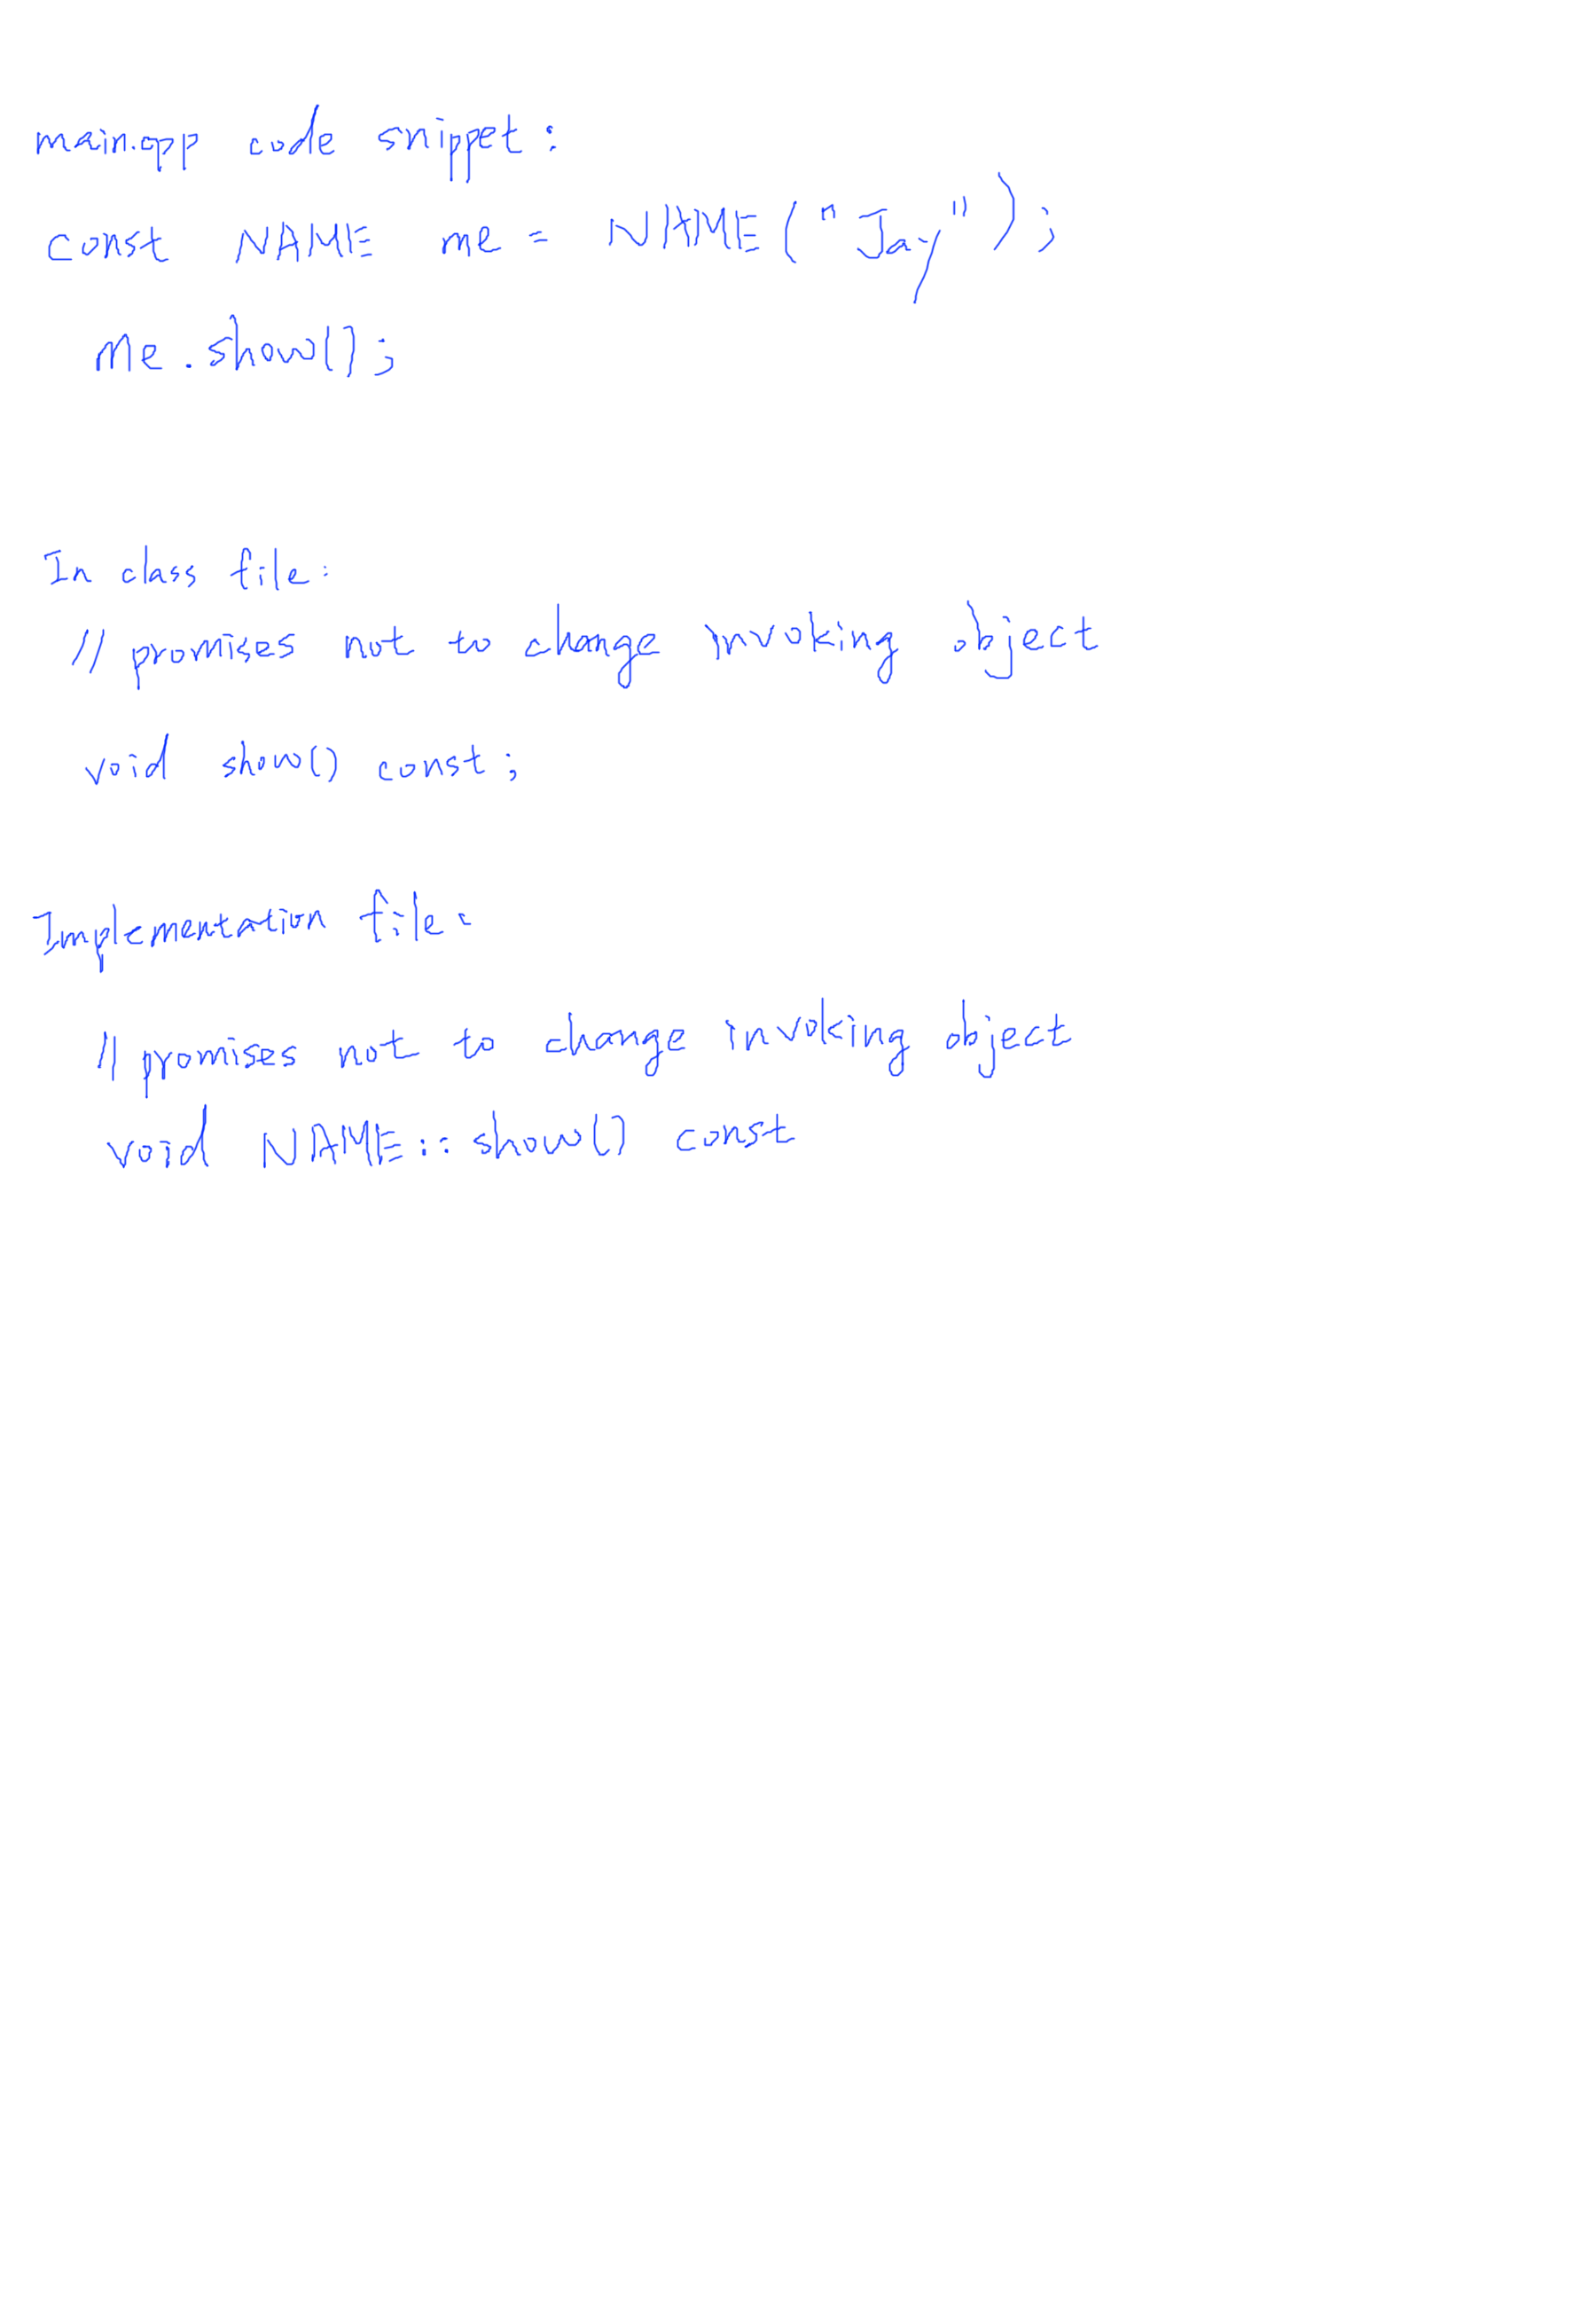 main.cpp code snippet:
const NAME me = NAME("Jay");
me.show();
In class file:
// promises not to change invoking object
void show() const;
Implementation file:
// promises not to change invoking object
void NAME::show() const